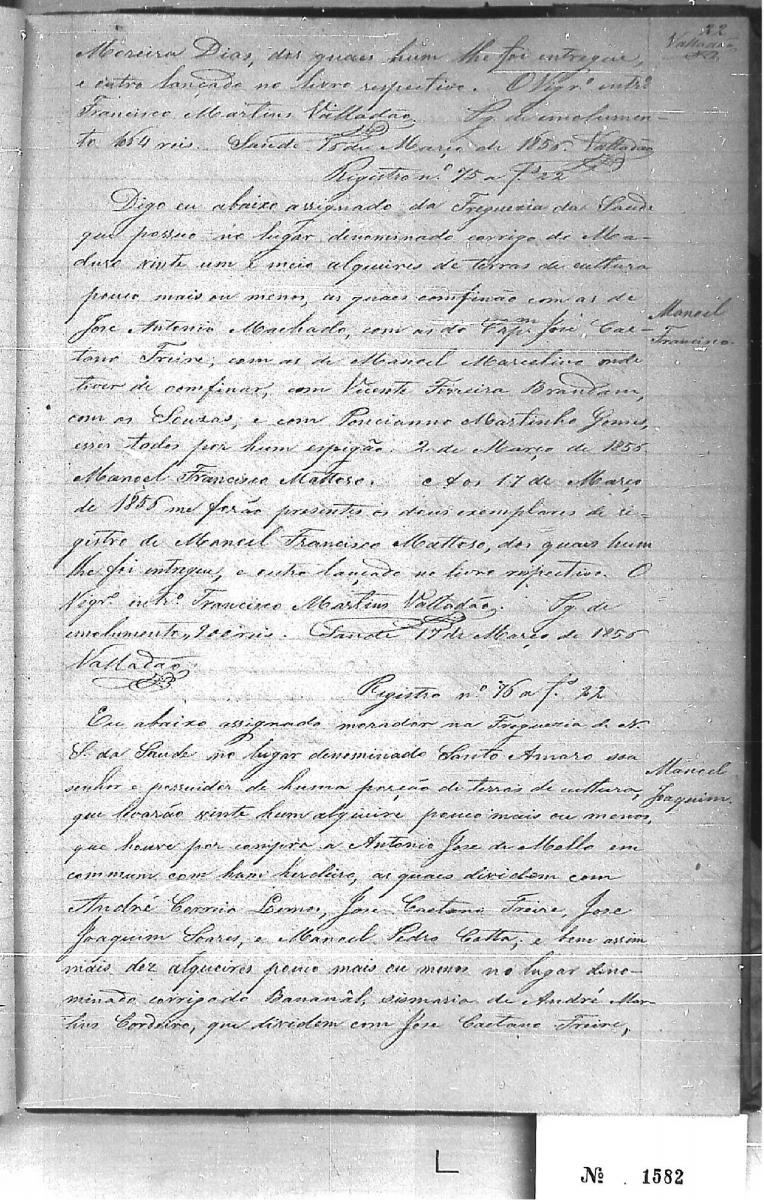 22
Valladão
Moreira Dias, dos quaes hum lhe foi entregue,
e outro lançado no livro respectivo. O Vigrº intrº
Francisco Martins Valladão. Pg. de emolumen-
to 654 reis. Saude 15 de Março de 1856. Valladão
Registro nº 75 a fº 22
Digo eu abaixo assignado da Freguezia da Saude
que possuo no lugar denominado corrigo do Ma-
duro vinte um e meio alqueires de terras de cultura
pouco mais ou menos, as quaes comfinão com as de
Jose Antonio Machado, com as do Capm José Cae-
tano Freire, com as de Manoel Marcelino onde
tiver de comfinar, com Vicente Ferreira Brandam,
com os Souzas, e com Poncianno Martinho Gomes,
esses todos por hum espigão. 2 de Março de 1856
Manoel Francisco Mattoso. Aos 17 de Março
de 1856 me forão presentes os dous exemplares de re-
gistro de Manoel Francisco Mattoso, dos quaes hum
lhe foi entregue, e outro lançado no livro respectivo. O
Vigrº intrº Francisco Martins Valladão. Pg. de
emolumento, 900 reis. Saude 17 de Março de 1856
Valladão
Manoel
Francisco.
Registro nº 76 a fº 22
Eu abaixo assignado morador na Freguezia de N.
S. da Saude no lugar denominado Santo Amaro sou
senhor e possuidor de huma porção de terras de cultura,
que levarão vinte hum alqueire pouco mais ou menos,
que houve por compra a Antonio Jose de Mello em
commum com hum herdeiro, as quaes dividem com
André Correia Lemos, Jose Caetano Freire, Jose
Joaquim Soares, e Manoel Pedro Cotta; e bem assim
mais dez alqueires pouco mais ou menos no lugar deno-
minado corrigo do Bananál, sismaria de André Mar-
tins Cordeiro, que dividem com Jose Caetano Freire,
Manoel
Joaquim.
Nº 1582